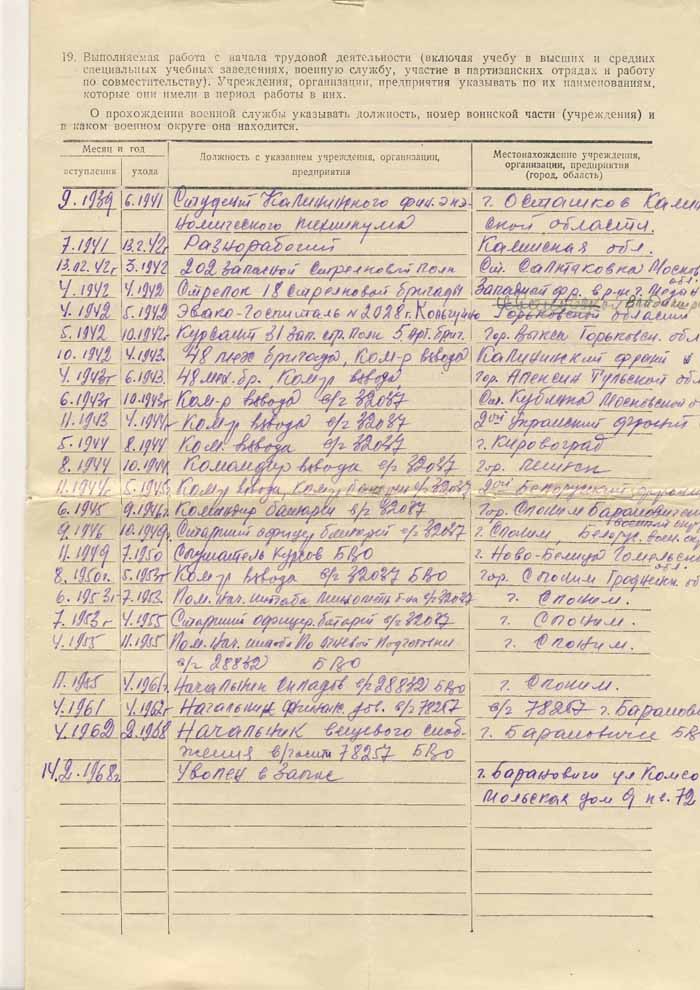 19. Выполняемая работа с начала трудовой деятельности (включая учебу в высших и средних
специальных учебных заведениях, военную службу, участие в партизанских отрядах и работу
по совместительству). Учреждения, организации, предприятия указывать по их наименованиям,
которые они имели в период работы в них.
О прохождении военной службы указывать должность, номер воинской части (учреждения) и
в каком военном округе она находится.
Месяц и год
вступления ухода
Должность с указанием учреждения, организации,
предприятия
Местонахождение учреждения,
организации, предприятия
(город, область)
9.1939 6.1941 Студент Калининского фин. эко- г. Осташков Калин
номического техникума ской области.
7.1941 13.2.42г Разнорабочий Калинская обл.
13.02.42г 3.1942 202 запасной стрелковый полк Ст. Салтыковка Москов обл.
4.1942 4.1942 Стрелок 18 стрелковой бригады Западный фр. в р-не г.
4.1942 5.1942 Эвако-госпиталь №2028 г. Кольчугино Горьковской области
5.1942 10.1942г Курсант 31 зап. стр. полк 5 арт. бриг. Гор. Выкса Горьковск. обл
10.1942 4.1943. 48 мех бригада, Ком-р взвода Калининский фронт
4.1943г 6.1943. 48 мех. бр. Ком-р взвода Тульской обл
6.1943г 10.1943г Ком-р взвода в/ч 32087 Ст. Кубинка Московской о
11.1943 4.1944г Ком-р взвода в/ч 32087 2ой Украинский фронт
5.1944 8.1944 Ком. взвода в/ч 32087 г. Кировоград
8.1944 10.1944 Командир взвода в/ч 32087 гор. Пинск
11.1944г 5.1945 Ком-р взвода, Ком-р батареи в/ч 32087 2ой Белорусский фронт
6.1945 9.1946г Командир батареи в/ч 32087 Гор. Слоним Барановичск
9.1946 10.1949г Старший офицер батареи в/ч 32087 г. Слоним, Белорус. воен. ок
11.1949 7.1950 Слушатель курсов БВО г. Ново-Белица Гомельск обл.
8.1950г. 5.1953г Ком-р взвода в/ч 32087 БВО гор. Слоним Гроднен. об
6.1953г 7.1953. Пом. нач. штаба в/ч 32087 г. Слоним.
7.1953г 4.1955 Старший офицер батареи в/ч 32087 г. Слоним.
4.1955 11.1955 Пом. нач. штаба по огневой подготовки г. Слоним.
в/ч 28832 БВО
11.1955 4.1961г. Начальник складов в/ч 28832 БВО г. Слоним.
4.1961 4.1962г Начальник финанс. дов. в/ч 78257 в/ч 78257 г. Баранов
4.1962 2.1968 Начальник вещевого снаб- г. Барановичи БВ
жения в/части 78257 БВО
14.2.1968г Уволен в запас г. Барановичи ул Комсо
мольская дом 9 кв. 72